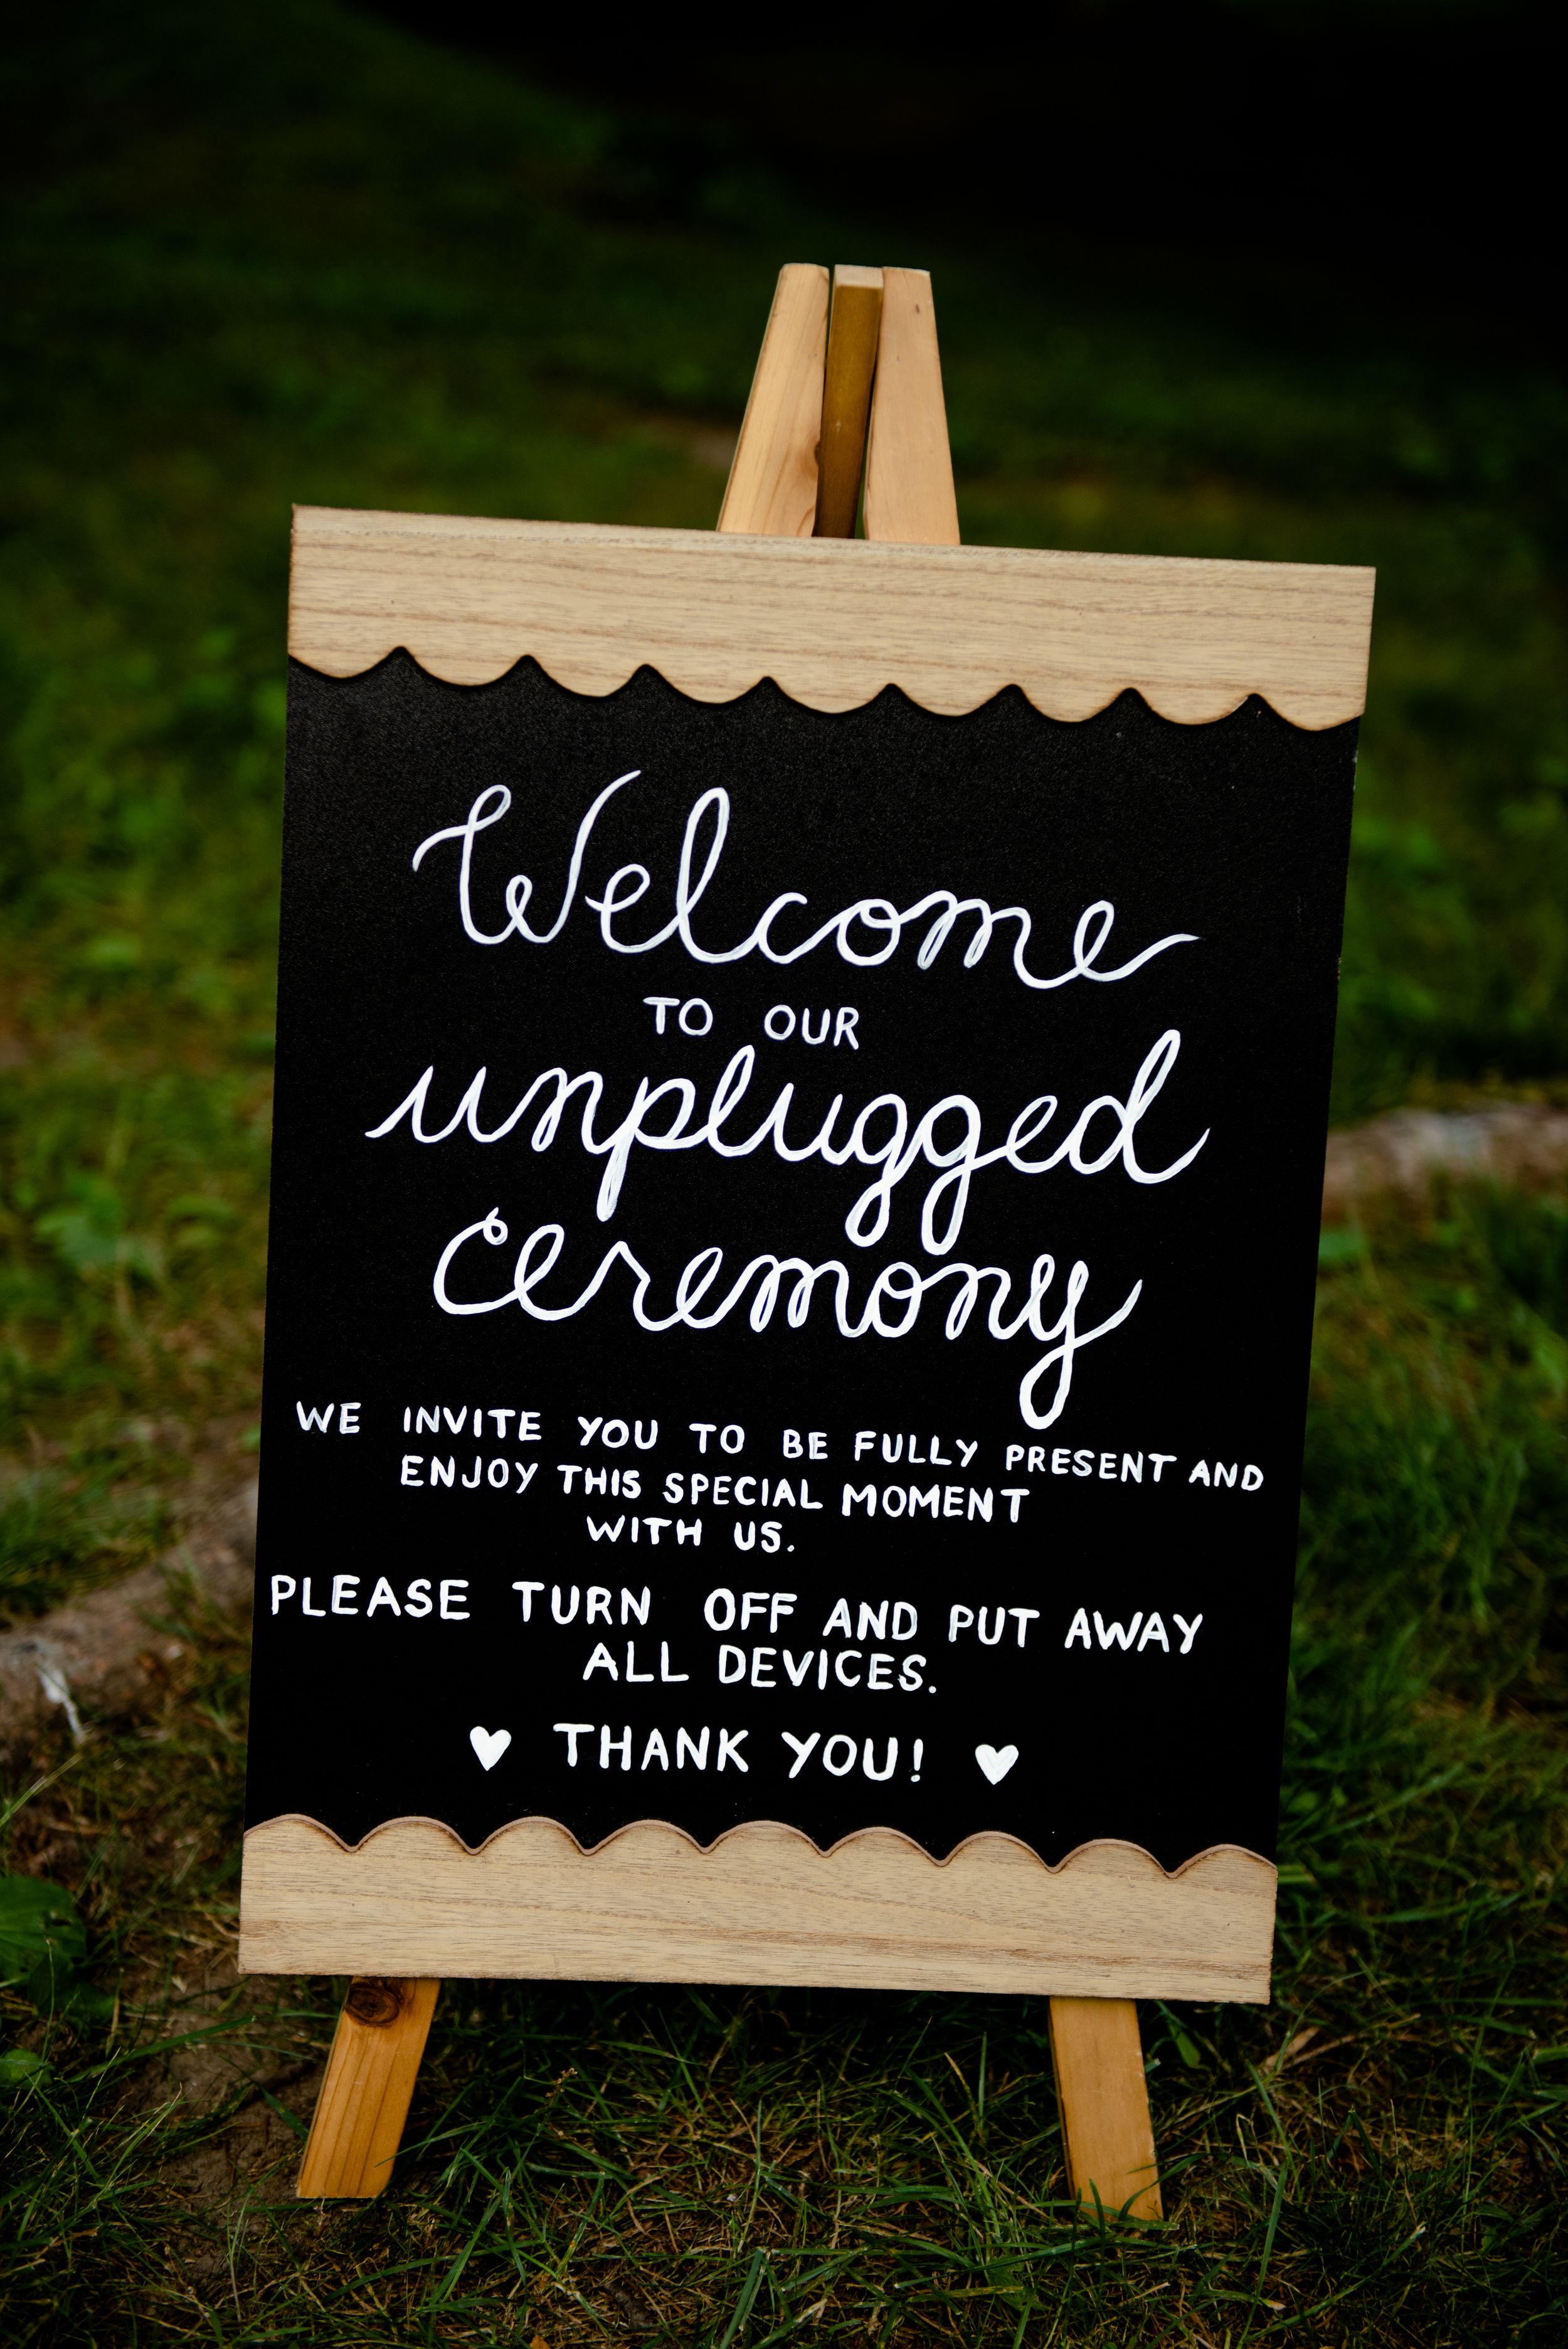 Welcome
TO OUR
unplugged
Ceremony
WE INVITE YOU TO BE FULLY PRESENT AND
ENJOY THIS SPECIAL MOMENT
WITH US.
PLEASE TURN OFF AND PUT AWAY
ALL DEVICES.
♥ THANK YOU! ♥